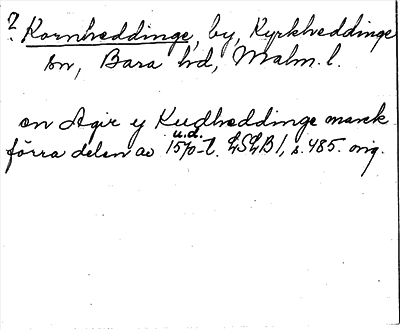 ? Kornheddinge, by, Kyrkheddinge
sn, Bara hd, Malm. l.
on Agir y Kudheddinge mark
u.d.
förra delen av 1570-t. LSLB 1, s. 485. orig.